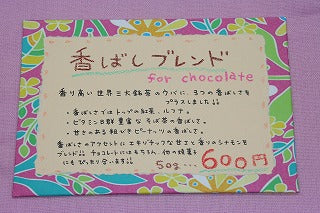 香ばしブレンド
for chocolate
香り高い世界三大銘茶のウバに、3つの香ばしさを
プラスしました!!
・香ばしさではトップの紅茶・ルフナ。
・ビタミンB群豊富なそば茶の香ばしさ。
・甘さのある粗びきピーナッツの香ばしさ。
香ばしさのアクセントにエキゾチックな甘さと香りのシナモンを
ブレンド!! チョコレートにはもちろん、他の焼菓子
にもぴったり合います!!
50g... 600円